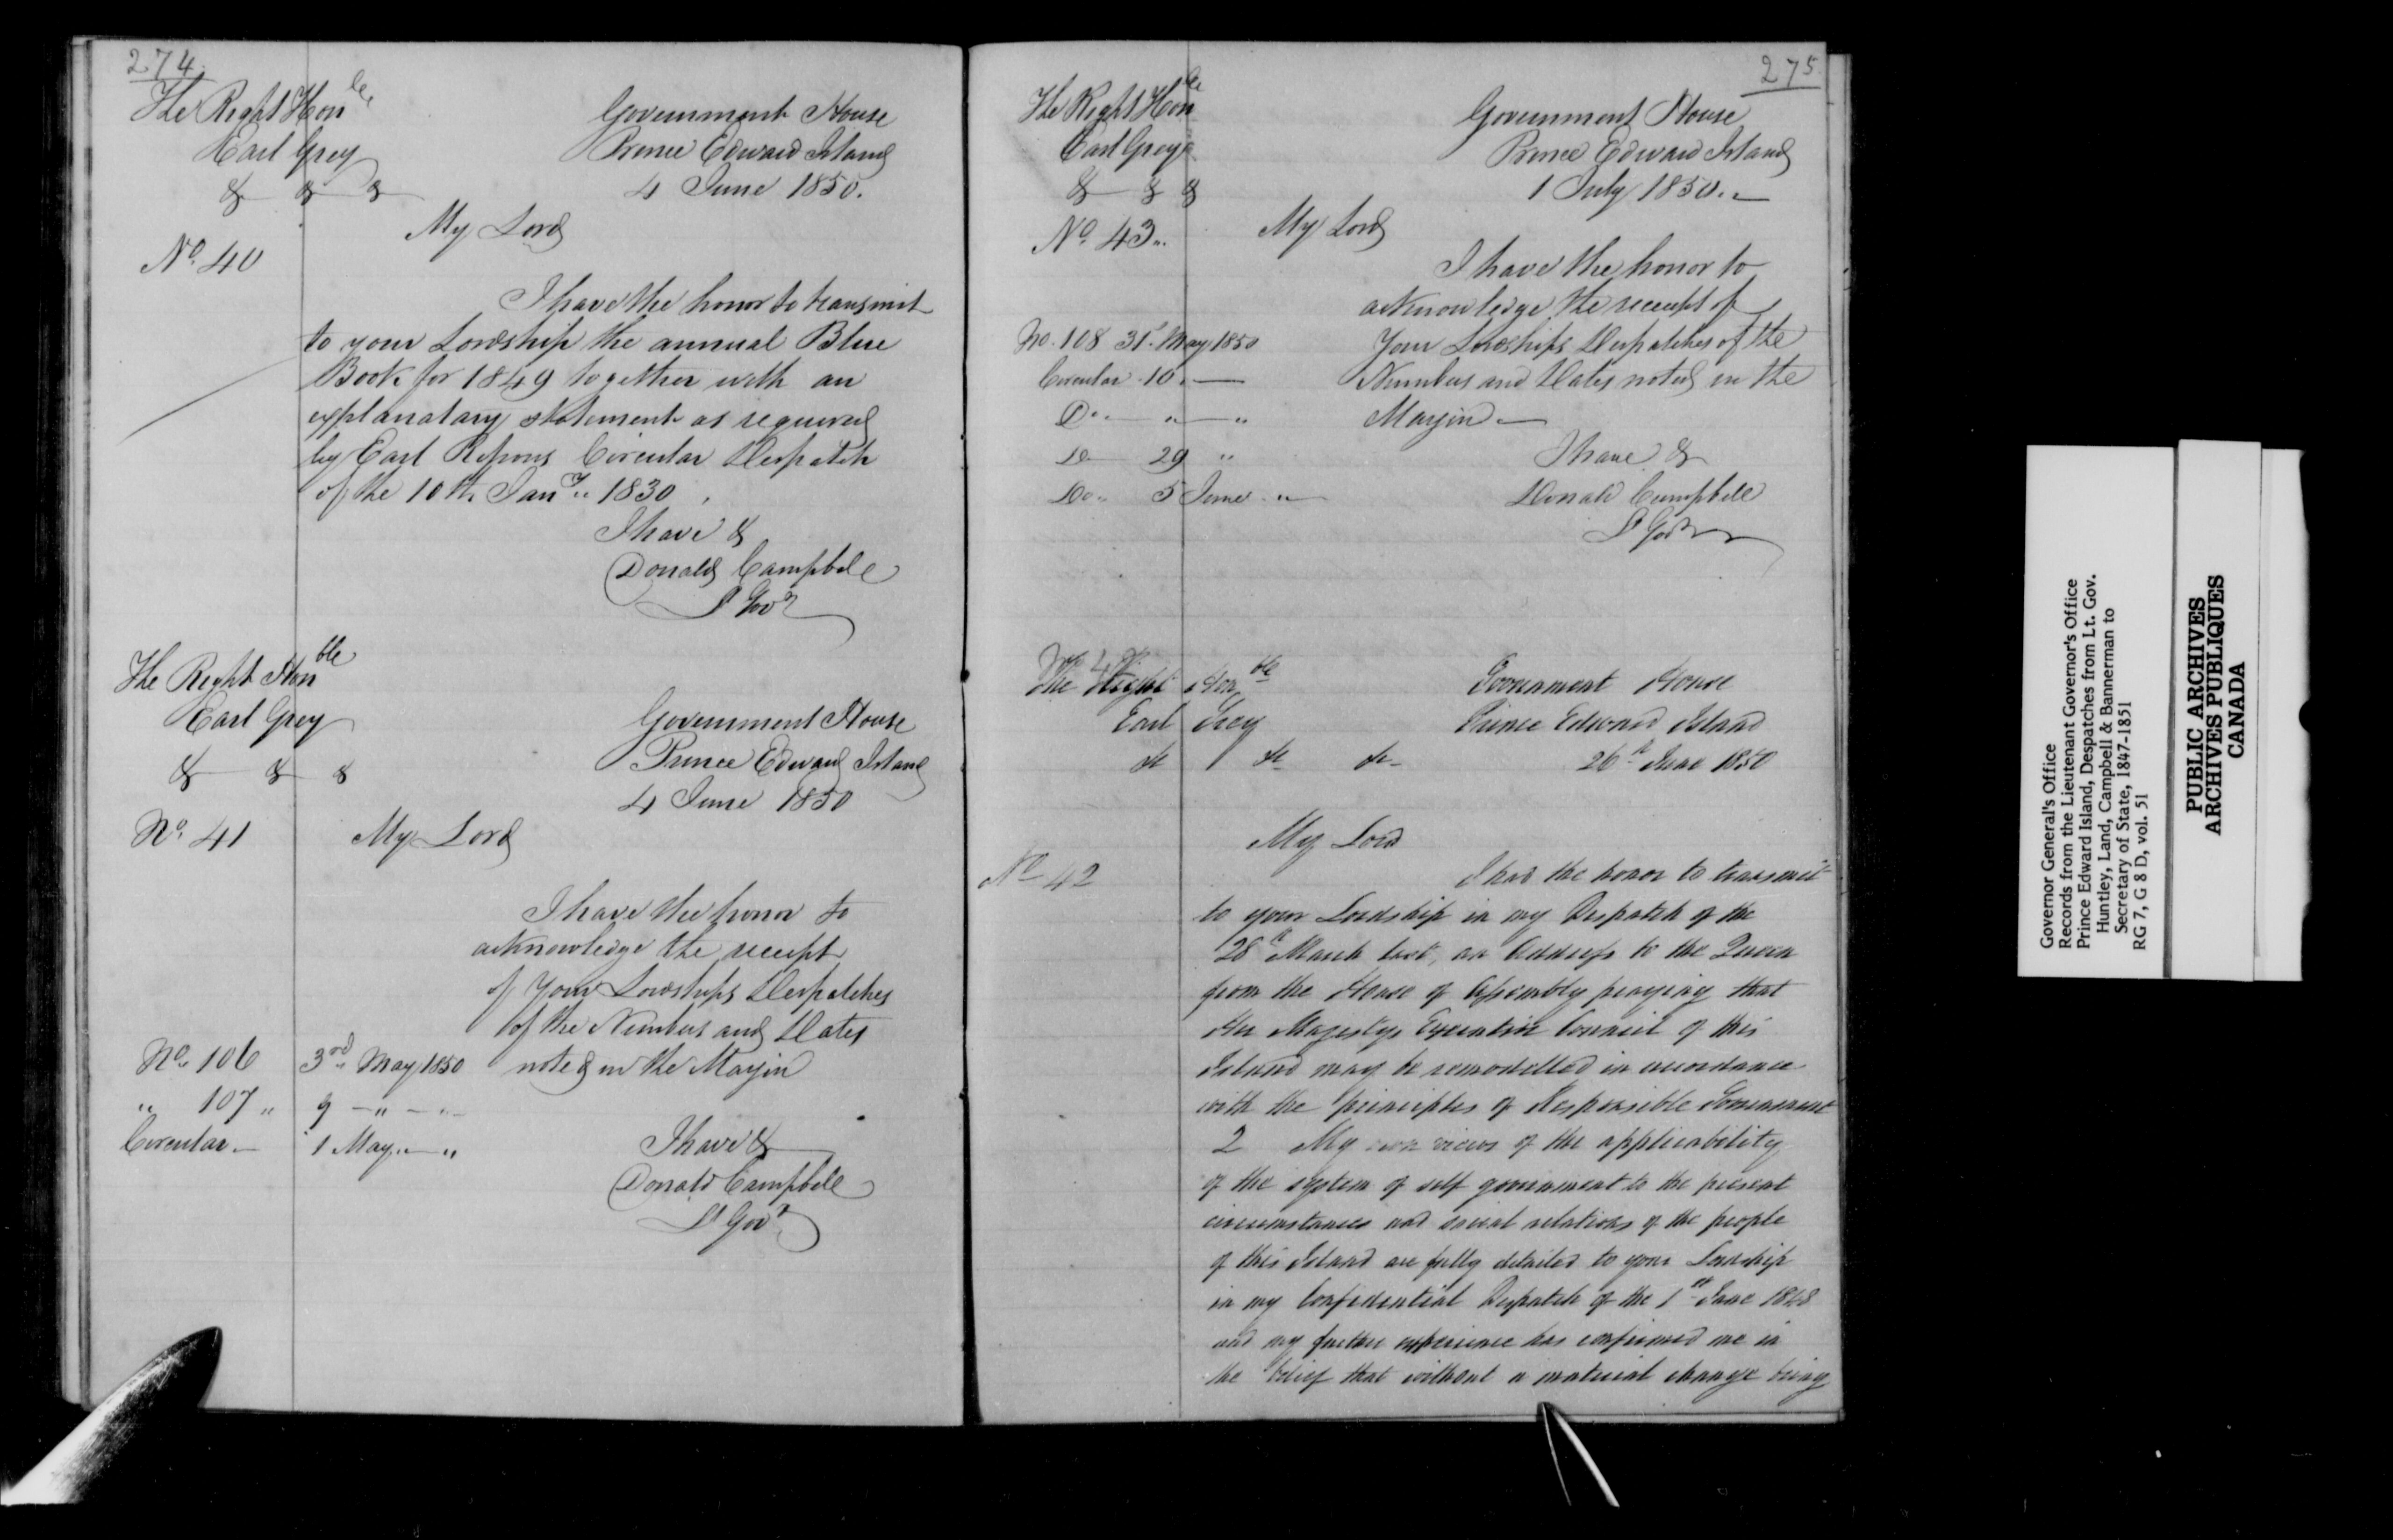 274
The Right Honle
Earl Grey
& & &
Government House
Prince Edward Island
4 June 1850.
My Lord
No. 40
I have the honor to transmit
to your Lordship the annual Blue
Book for 1849 together with an
explanatory statement as required
by Earl Ripons Circular Despatch
of the 10th Jany 1830
I have &
Donald Campbell
Lt Govr
The Right Honble
Earl Grey
& & &
Government House
Prince Edward Island
4 June 1850
No. 41
My Lord
I have the honor to
acknowledge the receipt
of Your Lordships Despatches
of the Numbers and Dates
No. 106 3rd May 1850 noted in the Margin
" 107 " 9 - " -
Circular - 1 May " - "
I have &
Donald Campbell
Lt Govr
275
The Right Honle
Earl Grey
& & &
Government House
Prince Edward Island
1 July 1850.
No. 43
My Lord
I have the honor to
acknowledge the receipt of
No. 108 31st May 1850 Your Lordships Despatches of the
Circular 10 - Numbers and Dates noted in the
Do " - " Margin -
Do 29 "
Do 5 June "
I have &
Donald Campbell
Lt Govr
The Right Honble
Earl Grey
&c &c &c
Government House
Prince Edward Island
26th June 1850
My Lord
No 42
I had the honor to transmit
to your Lordship in my Despatch of the
28th March last, an Address to the Queen
from the House of Assembly praying that
Her Majestys Executive Council of this
Island may be remodelled in accordance
with the principles of Responsible Government
2 My own views of the applicability
of the system of self government to the present
circumstances and social relations of the people
of this Island are fully detailed to your Lordship
in my Confidential Despatch of the 1st June 1848
and my further experience has confirmed me in
the belief that without a material change being
Governor General's Office
Records from the Lieutenant Governor's Office
Prince Edward Island, Despatches from Lt. Gov.
Huntley, Land, Campbell & Bannerman to
Secretary of State, 1847-1851
RG 7, G 8 D, vol. 51
PUBLIC ARCHIVES
ARCHIVES PUBLIQUES
CANADA